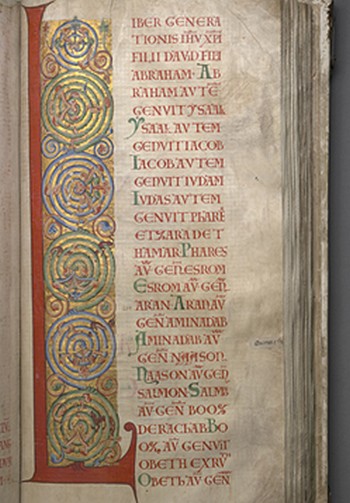 LIBER GENERA
TIONIS IHV XPI
FILII DAVID FILII
ABRAHAM. AB
RAHAM AVTE
GENVIT YSAAC
YSAAC AVTEM
GENVIT IACOB
IACOB AVTEM
GENVIT IVDAM
IVDAS AVTEM
GENVIT PHARE
ET ZARA DE T
HAMAR PHARES
AV GEN ESROM
ESROM AV GEN
ARAN. ARAN AV
GEN AMINADAB
AMINADAB AV
GEN NAASON.
NAASON AV GEN
SALMON. SALM
AV GEN BOOZ
DE RACHAB. BO
OZ AV GENVIT
OBETH EX RV
OBETH AV GEN